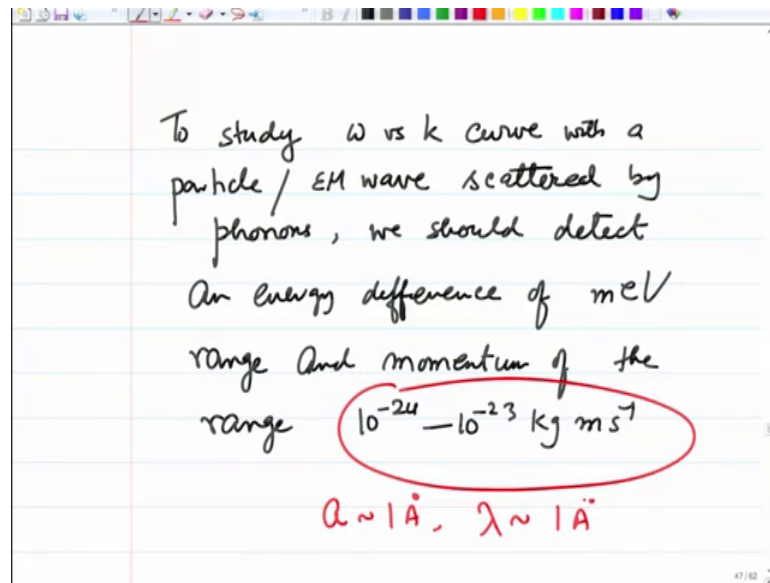 To study ω vs k curve with a
particle / EM wave scattered by
phonons, we should detect
an energy difference of meV
range and momentum of the
range 10⁻²⁴ – 10⁻²³ kg ms⁻¹
a ~ 1 Å, λ ~ 1 Å
47/62